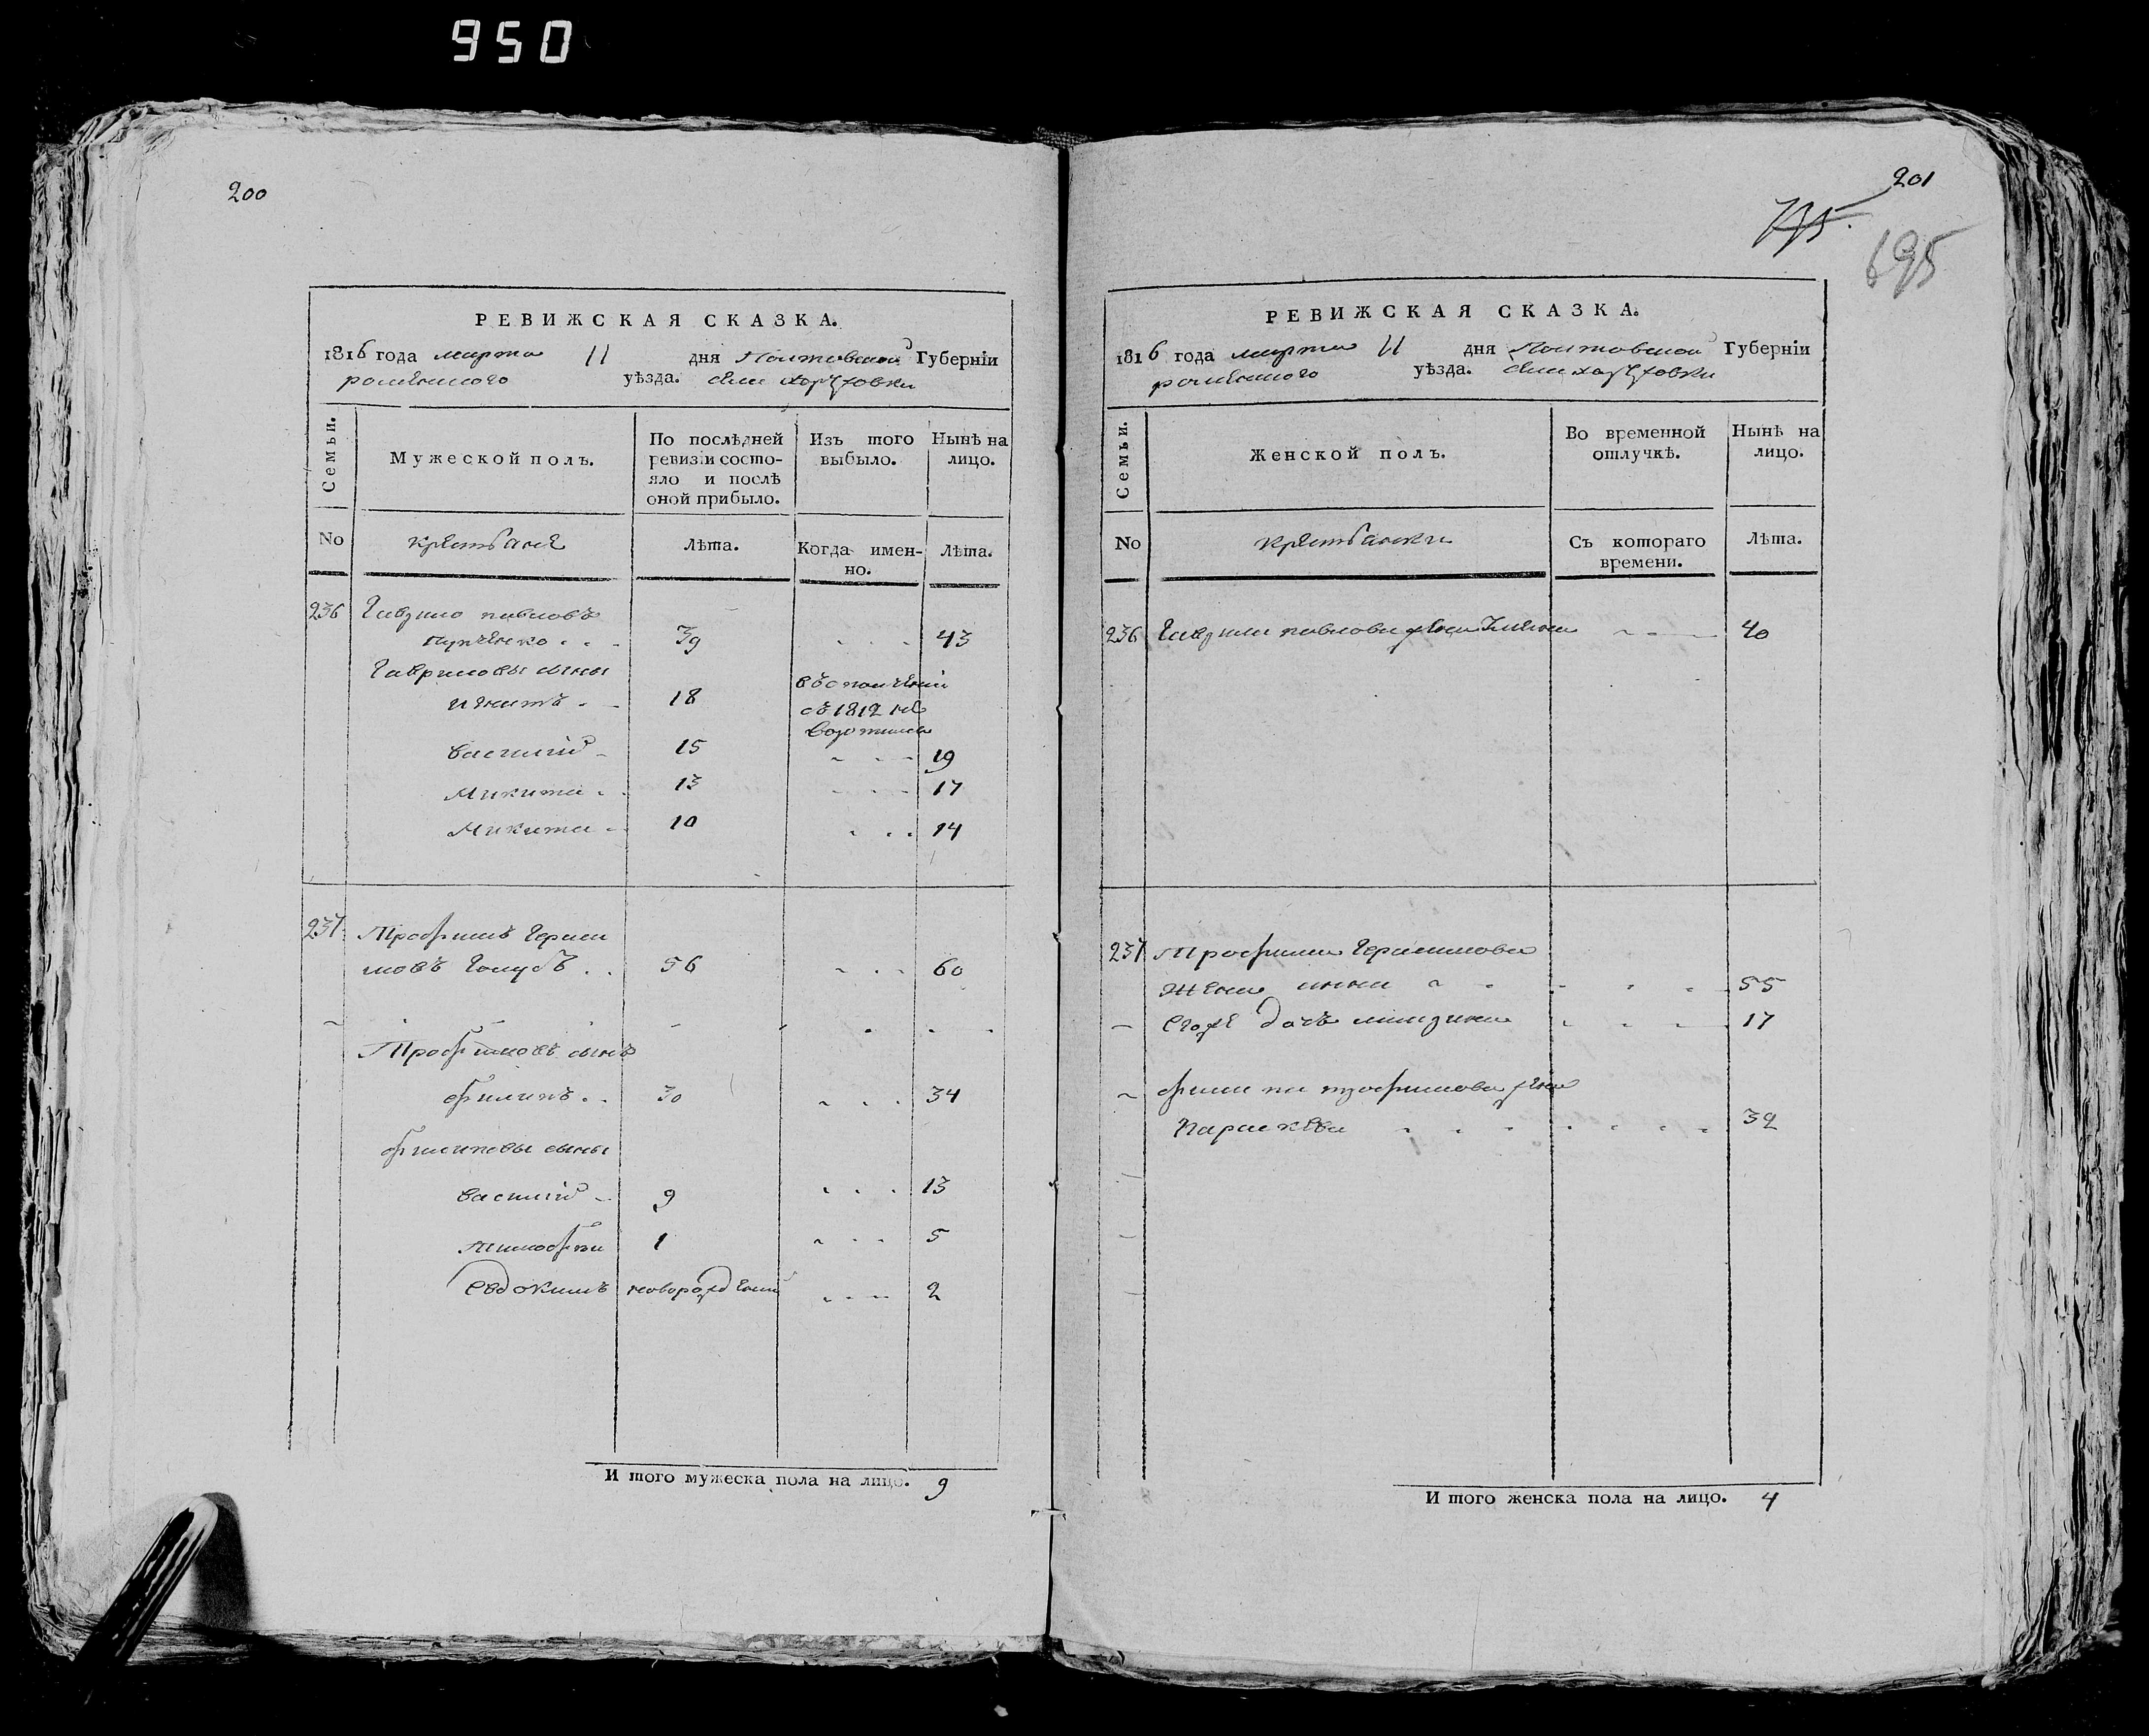 950
200
РЕВИЖСКАЯ СКАЗКА.
1816 года марта 11 дня Полтавской Губерніи
роменского уѣзда. села
Семьи.
Мужеской полъ.
По послѣдней ревизіи состояло и послѣ оной прибыло.
Изъ того выбыло.
Нынѣ на лицо.
No
крестьяне
Лѣта.
Когда именно.
Лѣта.
236 Гаврило павловъ
39 43
Гавриловы сыны
игнатъ 18 въ ополченіи
съ 1812 не
василий 15 19
Микита 13 17
Микита 10 14
237 Трофимъ Гераси
мовъ Голубъ 56 60
Трофимовъ сынъ
филипъ 30 34
филиповы сыны
василий 9 13
Тимофѣй 1 5
Евдокимъ новорожденный 2
И того мужеска пола на лицо. 9
201
695
РЕВИЖСКАЯ СКАЗКА.
1816 года марта 11 дня Полтавской Губерніи
роменского уѣзда. села
Семьи.
Женской полъ.
Во временной отлучкѣ.
Нынѣ на лицо.
No
крестьянки
Съ котораго времени.
Лѣта.
236 Гаврила павлова жена 40
237 Трофима Герасимова
жена анна 55
Егоже дочь 17
филипа трофимова жена
Параскева 32
И того женска пола на лицо. 4